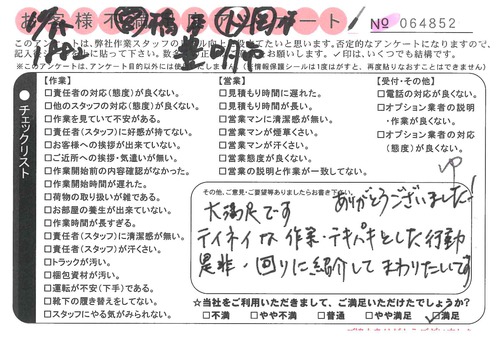 お客様不満足度アンケート
No 064852
このアンケートは、弊社作業スタッフの
せたいと思います。否定的なアンケートになりますので、
お願いします。は、いくつでも結構です。
※このアンケートは、アンケート目的以外には使用いたしません。(個人情報保護シールは1度はがすと、再度貼りなおすことはできません)
チェックリスト
【作業】
□責任者の対応(態度)が良くない。
□他のスタッフの対応(態度)が良くない。
□作業を見ていて不安がある。
□責任者(スタッフ)に好感が持てない。
□お客様への挨拶が出来ていない。
□ご近所への挨拶・気遣いが無い。
□作業開始前の内容確認がなかった。
□作業開始時間が遅れた。
□荷物の取り扱いが雑である。
□お部屋の養生が出来ていない。
□作業時間が長すぎる。
□責任者(スタッフ)に清潔感が無い。
□責任者(スタッフ)が汗くさい。
□トラックが汚い。
□梱包資材が汚い。
□運転が不安(下手)である。
□靴下の履き替えをしてない。
□スタッフにやる気がみられない。
【営業】
□見積もり時間に遅れた。
□見積もり時間が長い。
□営業マンに清潔感が無い。
□営業マンが煙草くさい。
□営業マンが汗くさい。
□営業態度が良くない。
□営業の説明と作業が一致してない。
【受付・その他】
□電話の対応が良くない。
□オプション業者の説明
・作業が良くない。
□オプション業者の対応
(態度)が良くない。
その他、ご意見・ご要望等ありましたらお書き下さい。
ありがとうございました!
大満足です
テイネイな作業・テキパキとした行動
是非・回りに紹介してまわりたいです
☆当社をご利用いただきまして、ご満足いただけたでしょうか?
□不満 □やや不満 □普通 □やや満足 ☑満足